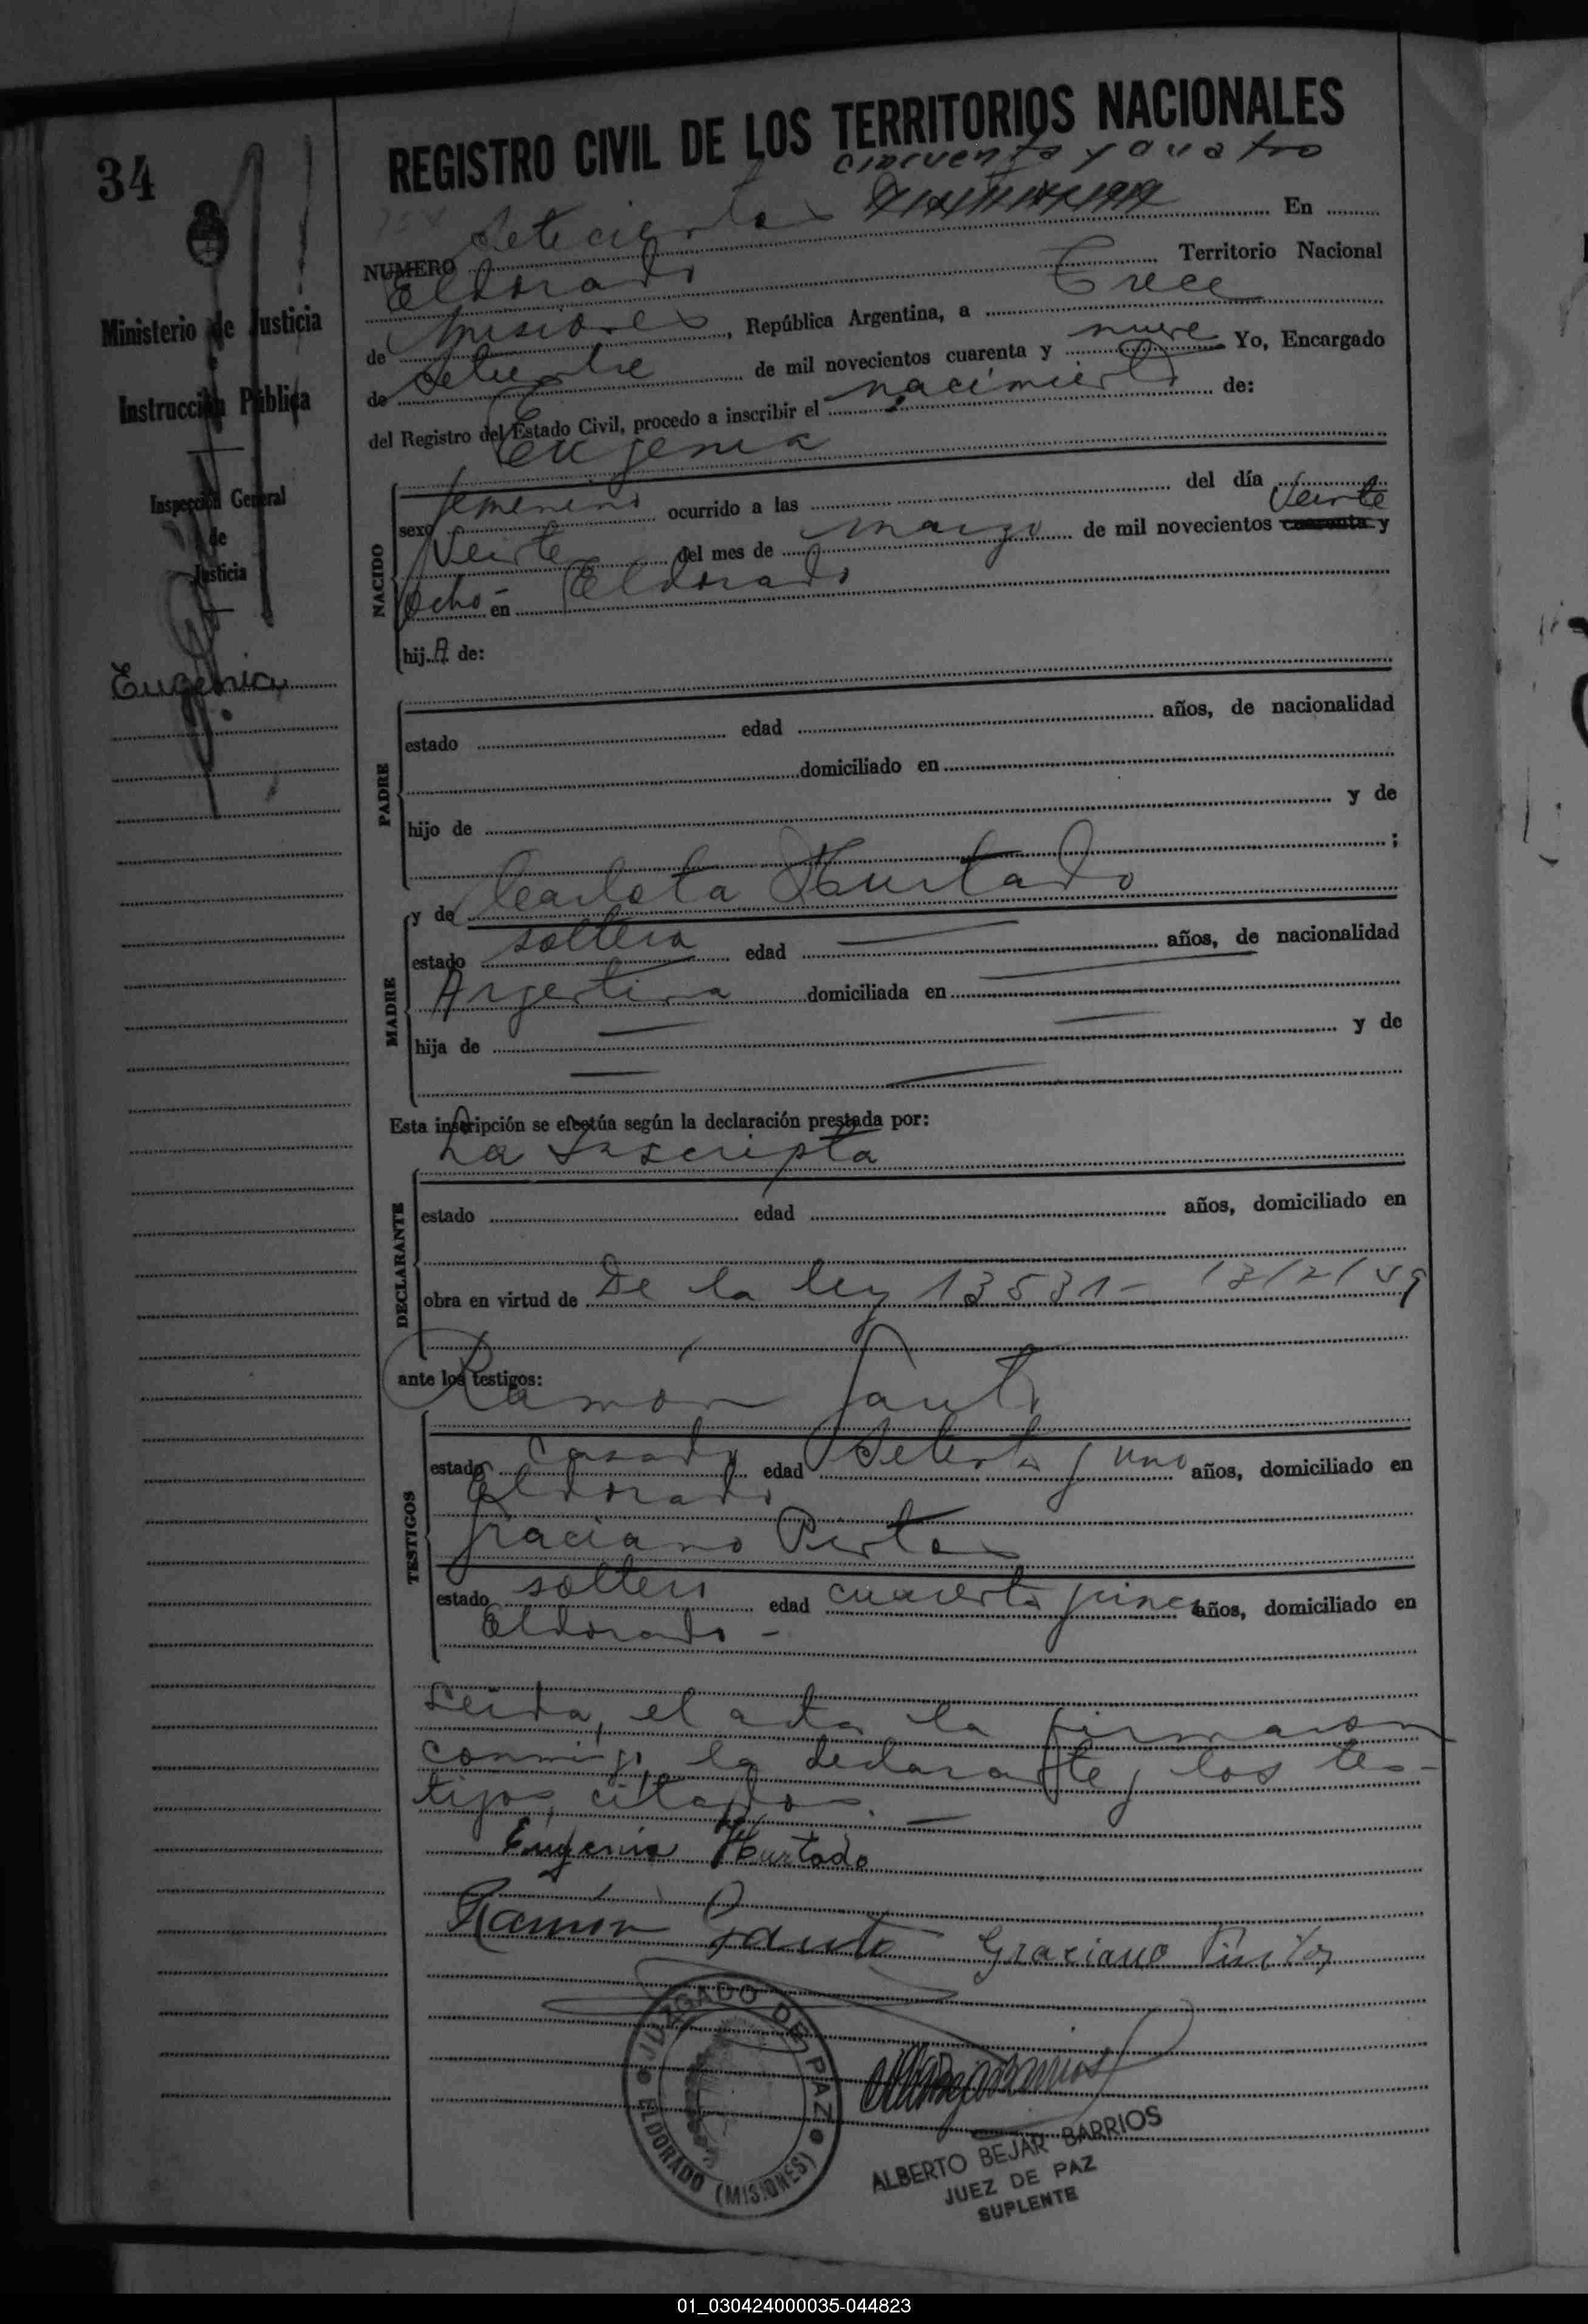 34
REGISTRO CIVIL DE LOS TERRITORIOS NACIONALES
cincuenta y cuatro
NUMERO Setecientos En
Eldorado Territorio Nacional
de Misiones, República Argentina, a Trece
de Setiembre de mil novecientos cuarenta y nueve Yo, Encargado
del Registro del Estado Civil, procedo a inscribir el nacimiento de:
Eugenia
Ministerio de Justicia
e
Instrucción Pública
Inspección General
de
Justicia
Eugenia
NACIDO
sexo femenino ocurrido a las del día
Veinte del mes de marzo de mil novecientos cuarenta y Veinte
ocho - en Eldorado
hija de:
PADRE
estado edad años, de nacionalidad
domiciliado en
hijo de y de
;
MADRE
y de Carlota Hurtado
estado soltera edad — años, de nacionalidad
Argentina domiciliada en —
hija de — y de
—
Esta inscripción se efectúa según la declaración prestada por:
La Inscripta
DECLARANTE
estado edad años, domiciliado en
obra en virtud de De la ley 13531 -
ante los testigos:
Ramón
TESTIGOS
estado casado edad Setenta y uno años, domiciliado en
Eldorado
Graciano
estado soltero edad cuarenta y cinco años, domiciliado en
Eldorado -
Leída, el acta la firmaron
conmigo la declarante y los tes-
tigos citados. —
Eugenia Hurtado
Ramón Graciano
JUZGADO DE PAZ
ELDORADO (MISIONES)
ALBERTO BEJAR BARRIOS
JUEZ DE PAZ
SUPLENTE
01_030424000035-044823